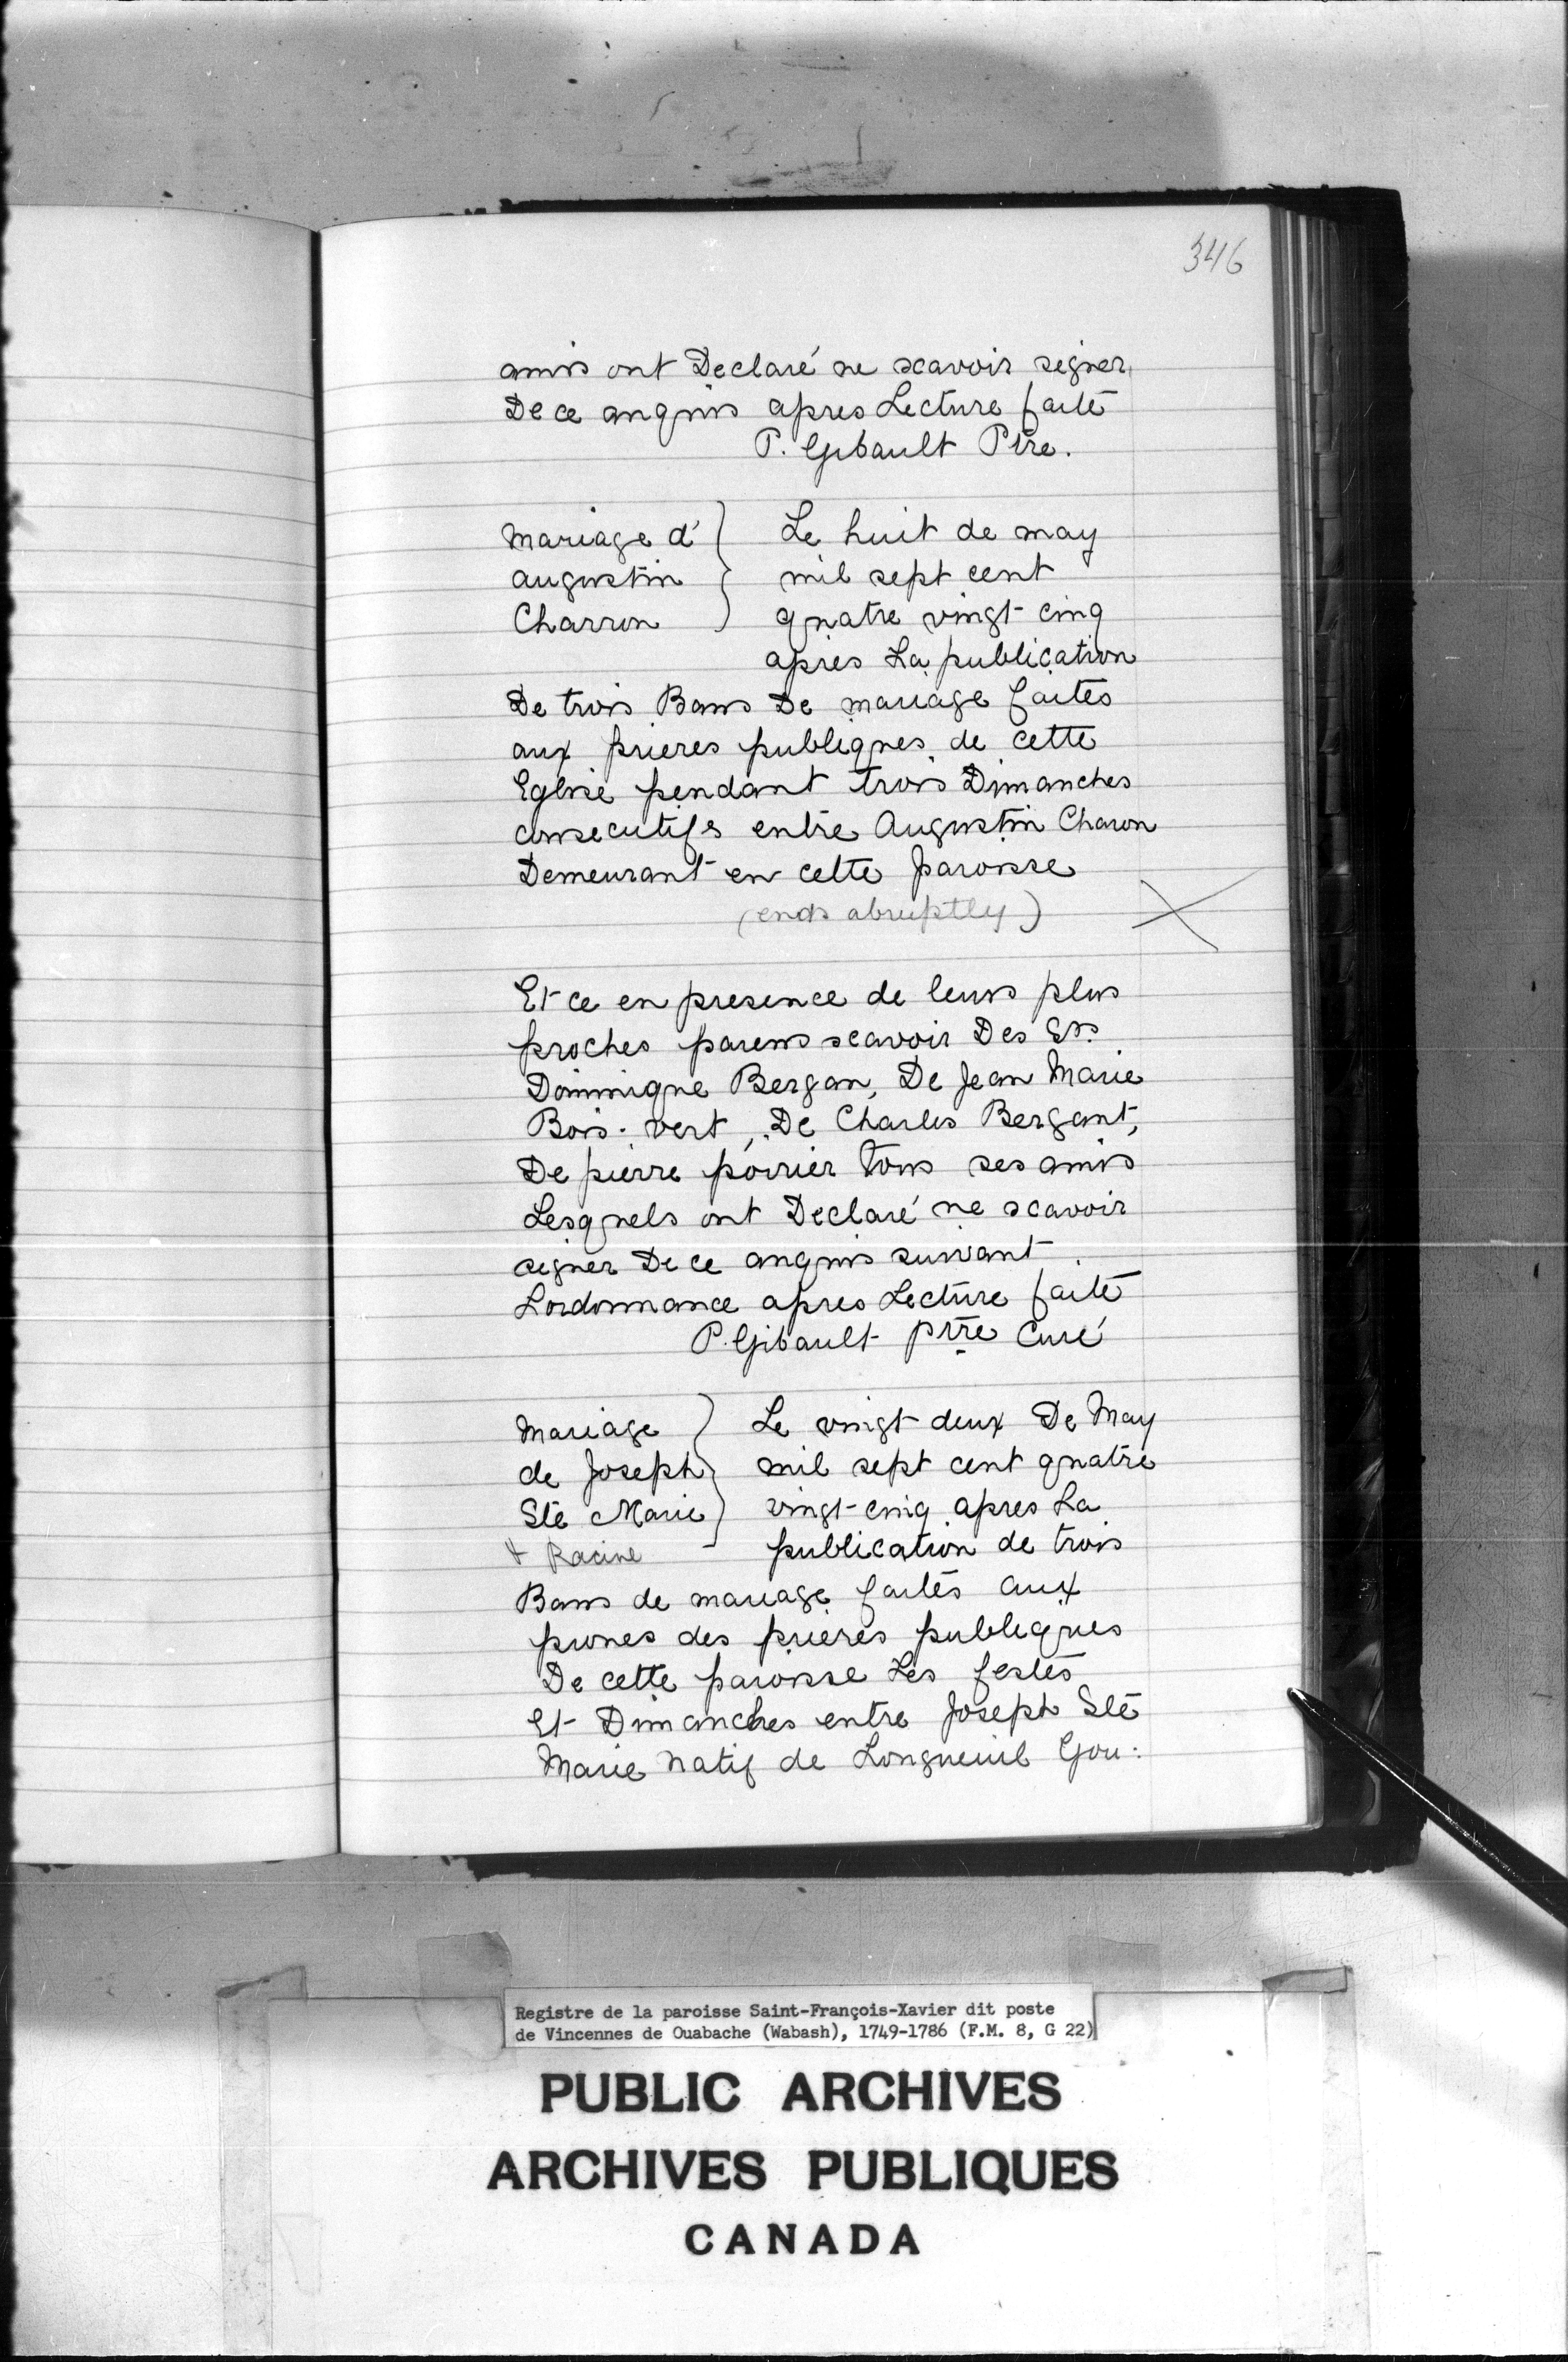 346
amis ont Declaré ne scavoir signer
De ce anquis apres Lecture faite
P. Gibault Ptre.
Mariage d' Le huit de may
augustin mil sept cent
Charron quatre vingt cinq
apres La publication
De trois Bans De mariage faites
aux prieres publiques de cette
Eglise pendant trois Dimanches
consecutifs entre Augustin Charon
Demeurant en cette paroisse
(ends abruptly)
Et ce en presence de leurs plus
proches parens scavoir Des Srs.
Dominique Bergan, De Jean Marie
Bois-vert, De Charles Bergant,
De pierre poirier tous ses amis
Lesquels ont Declaré ne scavoir
signer De ce anquis suivant
Lordonnance apres Lecture faite
P. Gibault ptre Curé
Mariage Le vingt deux De May
de Joseph mil sept cent quatre
Ste Marie vingt-cinq apres La
& Racine publication de trois
Bans de mariage faites aux
prones des prieres publiques
De cette paroisse Les festes
Et Dimanches entre Joseph Ste
Marie natif de Longueuil Gou:
Registre de la paroisse Saint-François-Xavier dit poste
de Vincennes de Ouabache (Wabash), 1749-1786 (F.M. 8, G 22)
PUBLIC ARCHIVES
ARCHIVES PUBLIQUES
CANADA